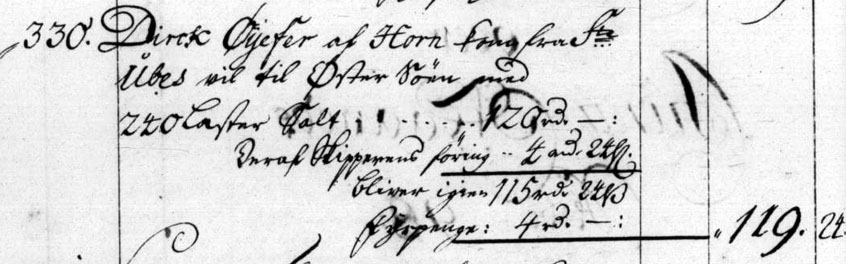 330. Dirck Øyefer af Horn kom fra St
Ubes vil til Øster Söen med
240 Laster Salt . . . . . . 120 rd. — :
Deraf Skipperens föring .. 4 rd. 24 ß.
bliver igien 115 rd. 24 ß
Fyrpenge : 4 rd. — : „ 119. 24